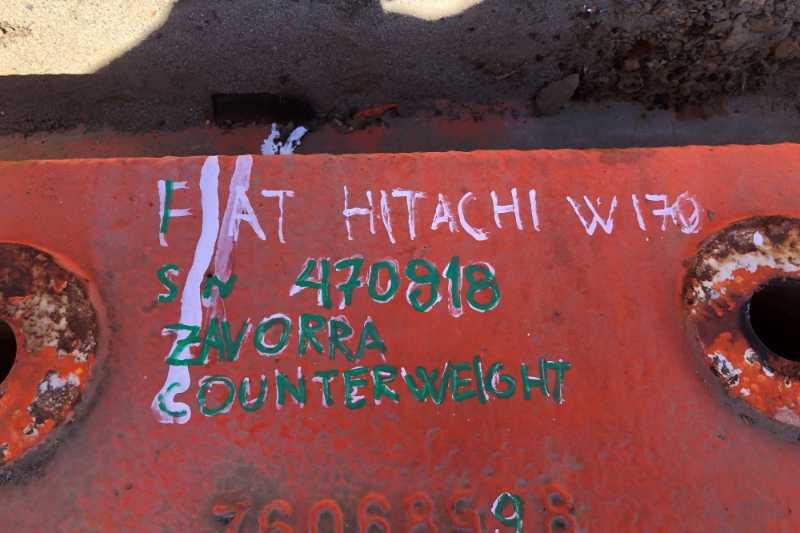 FIAT HITACHI W170
SN 470918
ZAVORRA
COUNTERWEIGHT